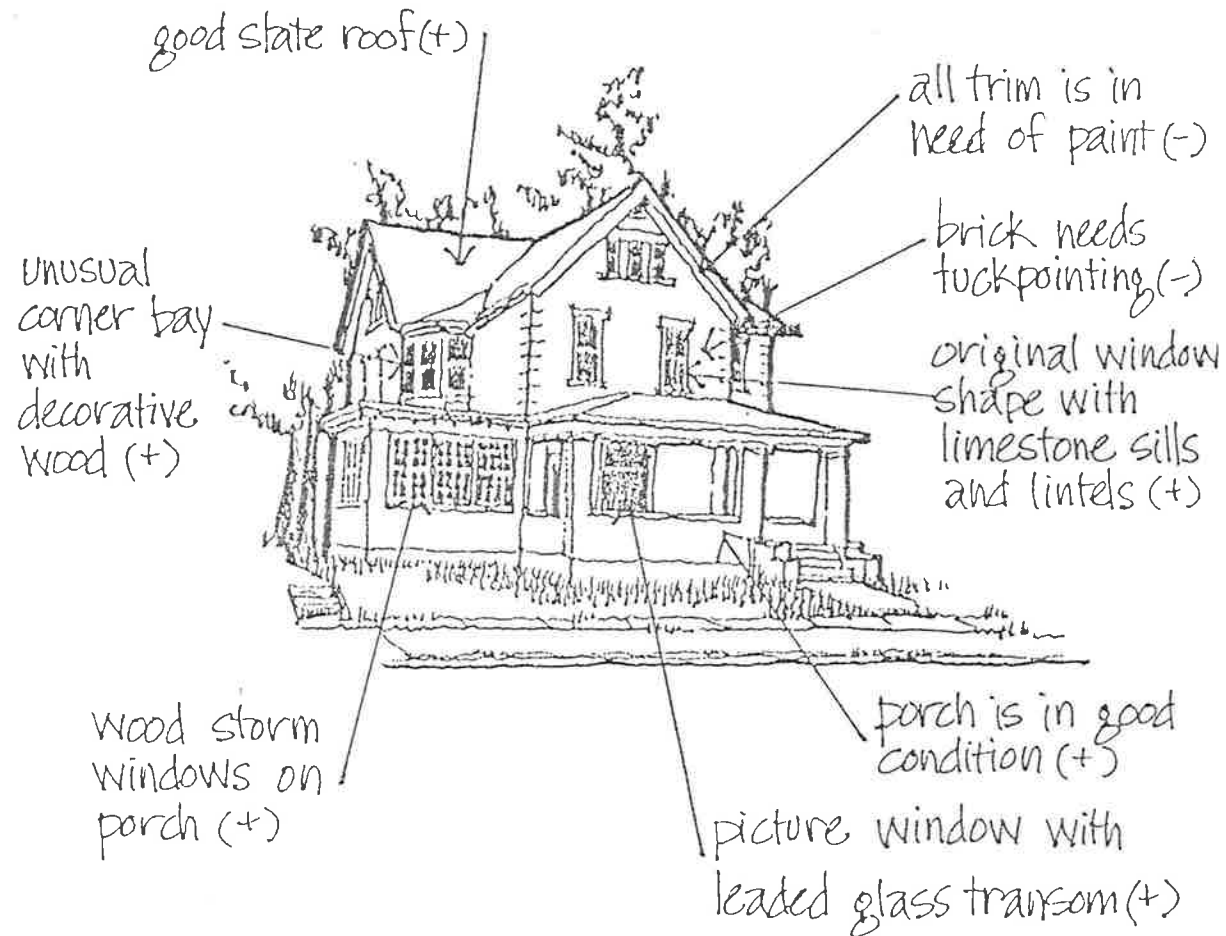 good slate roof (+)
all trim is in
need of paint (-)
brick needs
tuckpointing (-)
unusual
corner bay
with
decorative
wood (+)
original window
shape with
limestone sills
and lintels (+)
wood storm
windows on
porch (+)
porch is in good
condition (+)
picture window with
leaded glass transom (+)